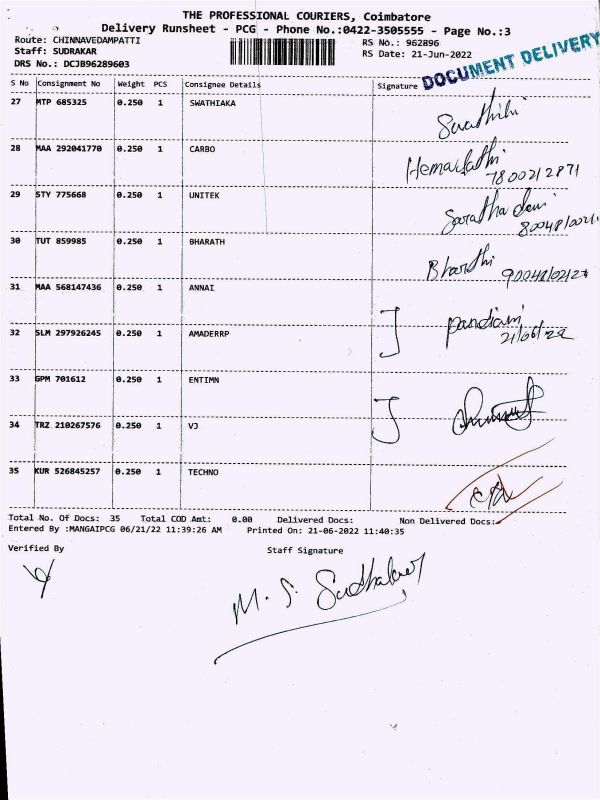 THE PROFESSIONAL COURIERS, Coimbatore
Delivery Runsheet - PCG - Phone No.:0422-3505555 - Page No.:3
Route: CHINNAVEDAMPATTI RS No.: 962896
Staff: SUDRAKAR RS Date: 21-Jun-2022
DRS No.: DCJB96289603
DOCUMENT DELIVERY
S No Consignment No Weight PCS Consignee Details Signature
27 MTP 685325 0.250 1 SWATHIAKA
28 MAA 292041770 0.250 1 CARBO
7800212871
29 STY 775668 0.250 1 UNITEK
Saratha devi
30 TUT 859985 0.250 1 BHARATH
Bharathi
31 MAA 568147436 0.250 1 ANNAI
32 SLM 297926245 0.250 1 AMADERRP
Pandiani
21/06/22
33 GPM 701612 0.250 1 ENTIMN
34 TRZ 210267576 0.250 1 VJ
35 KUR 526845257 0.250 1 TECHNO
Total No. Of Docs: 35 Total COD Amt: 0.00 Delivered Docs: Non Delivered Docs:
Entered By :MANGAIPCG 06/21/22 11:39:26 AM Printed On: 21-06-2022 11:40:35
Verified By Staff Signature
M. S. Sudhakar